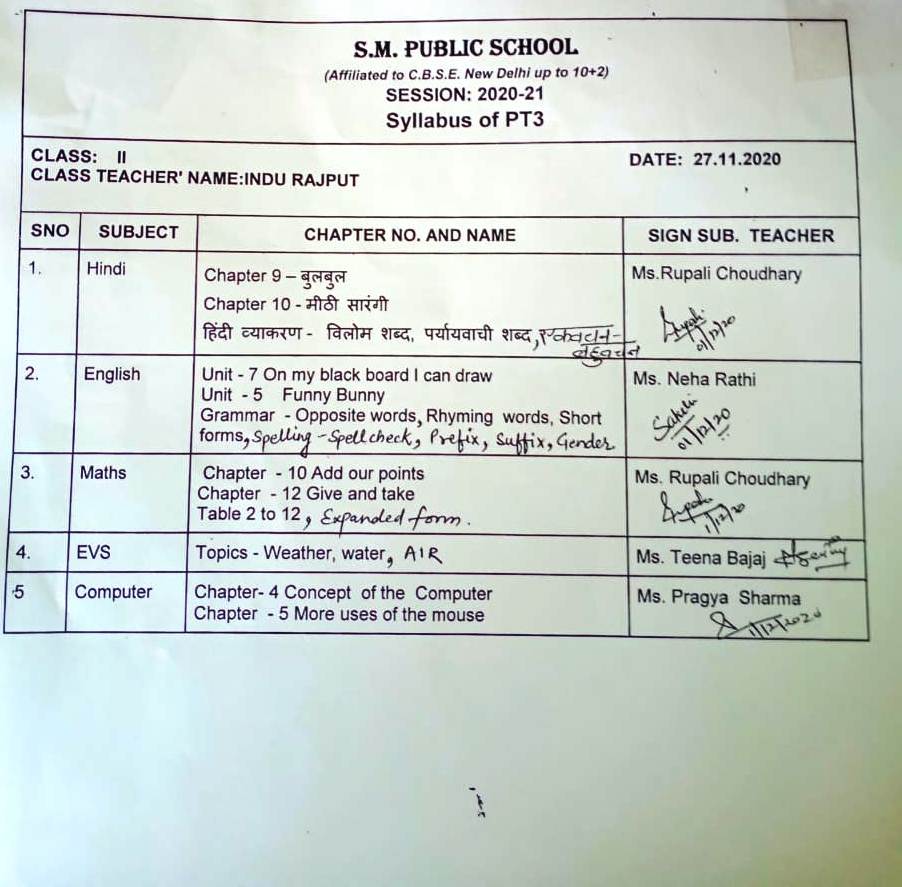 S.M. PUBLIC SCHOOL
(Affiliated to C.B.S.E. New Delhi up to 10+2)
SESSION: 2020-21
Syllabus of PT3
CLASS: II
DATE: 27.11.2020
CLASS TEACHER' NAME:INDU RAJPUT
SNO SUBJECT CHAPTER NO. AND NAME SIGN SUB. TEACHER
1. Hindi Chapter 9 – बुलबुल Ms.Rupali Choudhary
Chapter 10 - मीठी सारंगी
हिंदी व्याकरण - विलोम शब्द, पर्यायवाची शब्द, एकवचन-
बहुवचन
01/12/20
2. English Unit - 7 On my black board I can draw Ms. Neha Rathi
Unit - 5 Funny Bunny
Grammar - Opposite words, Rhyming words, Short
forms, Spelling - Spell check, Prefix, Suffix, Gender
01/12/20
3. Maths Chapter - 10 Add our points Ms. Rupali Choudhary
Chapter - 12 Give and take
Table 2 to 12, Expanded form.
1/12/20
4. EVS Topics - Weather, water, AIR Ms. Teena Bajaj
5 Computer Chapter- 4 Concept of the Computer Ms. Pragya Sharma
Chapter - 5 More uses of the mouse
1/12/2020